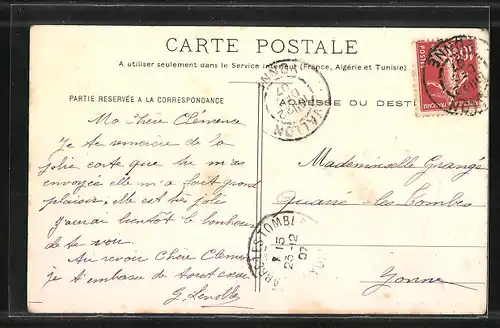 CARTE POSTALE
A utiliser seulement dans le Service intérieur (France, Algérie et Tunisie)
PARTIE RESERVÉE A LA CORRESPONDANCE
ADRESSE DU DESTI
Ma Chère Clemence
Je te remercie de la
jolie carte que tu m'as
envoyée elle m'a fait grand
plaisir. Elle est très jolie
J'aurai bientôt le bonheur
de te voir
Au revoir Chère Clemen
Je t'embrasse de tout cœur
G. Lenoble
Mademoiselle Grangé
Quarré-les-Tombes
Yonne
AVALLON
YONNE
QUARRÉ-LES-TOMBES
15
23-12
07
POSTES
10